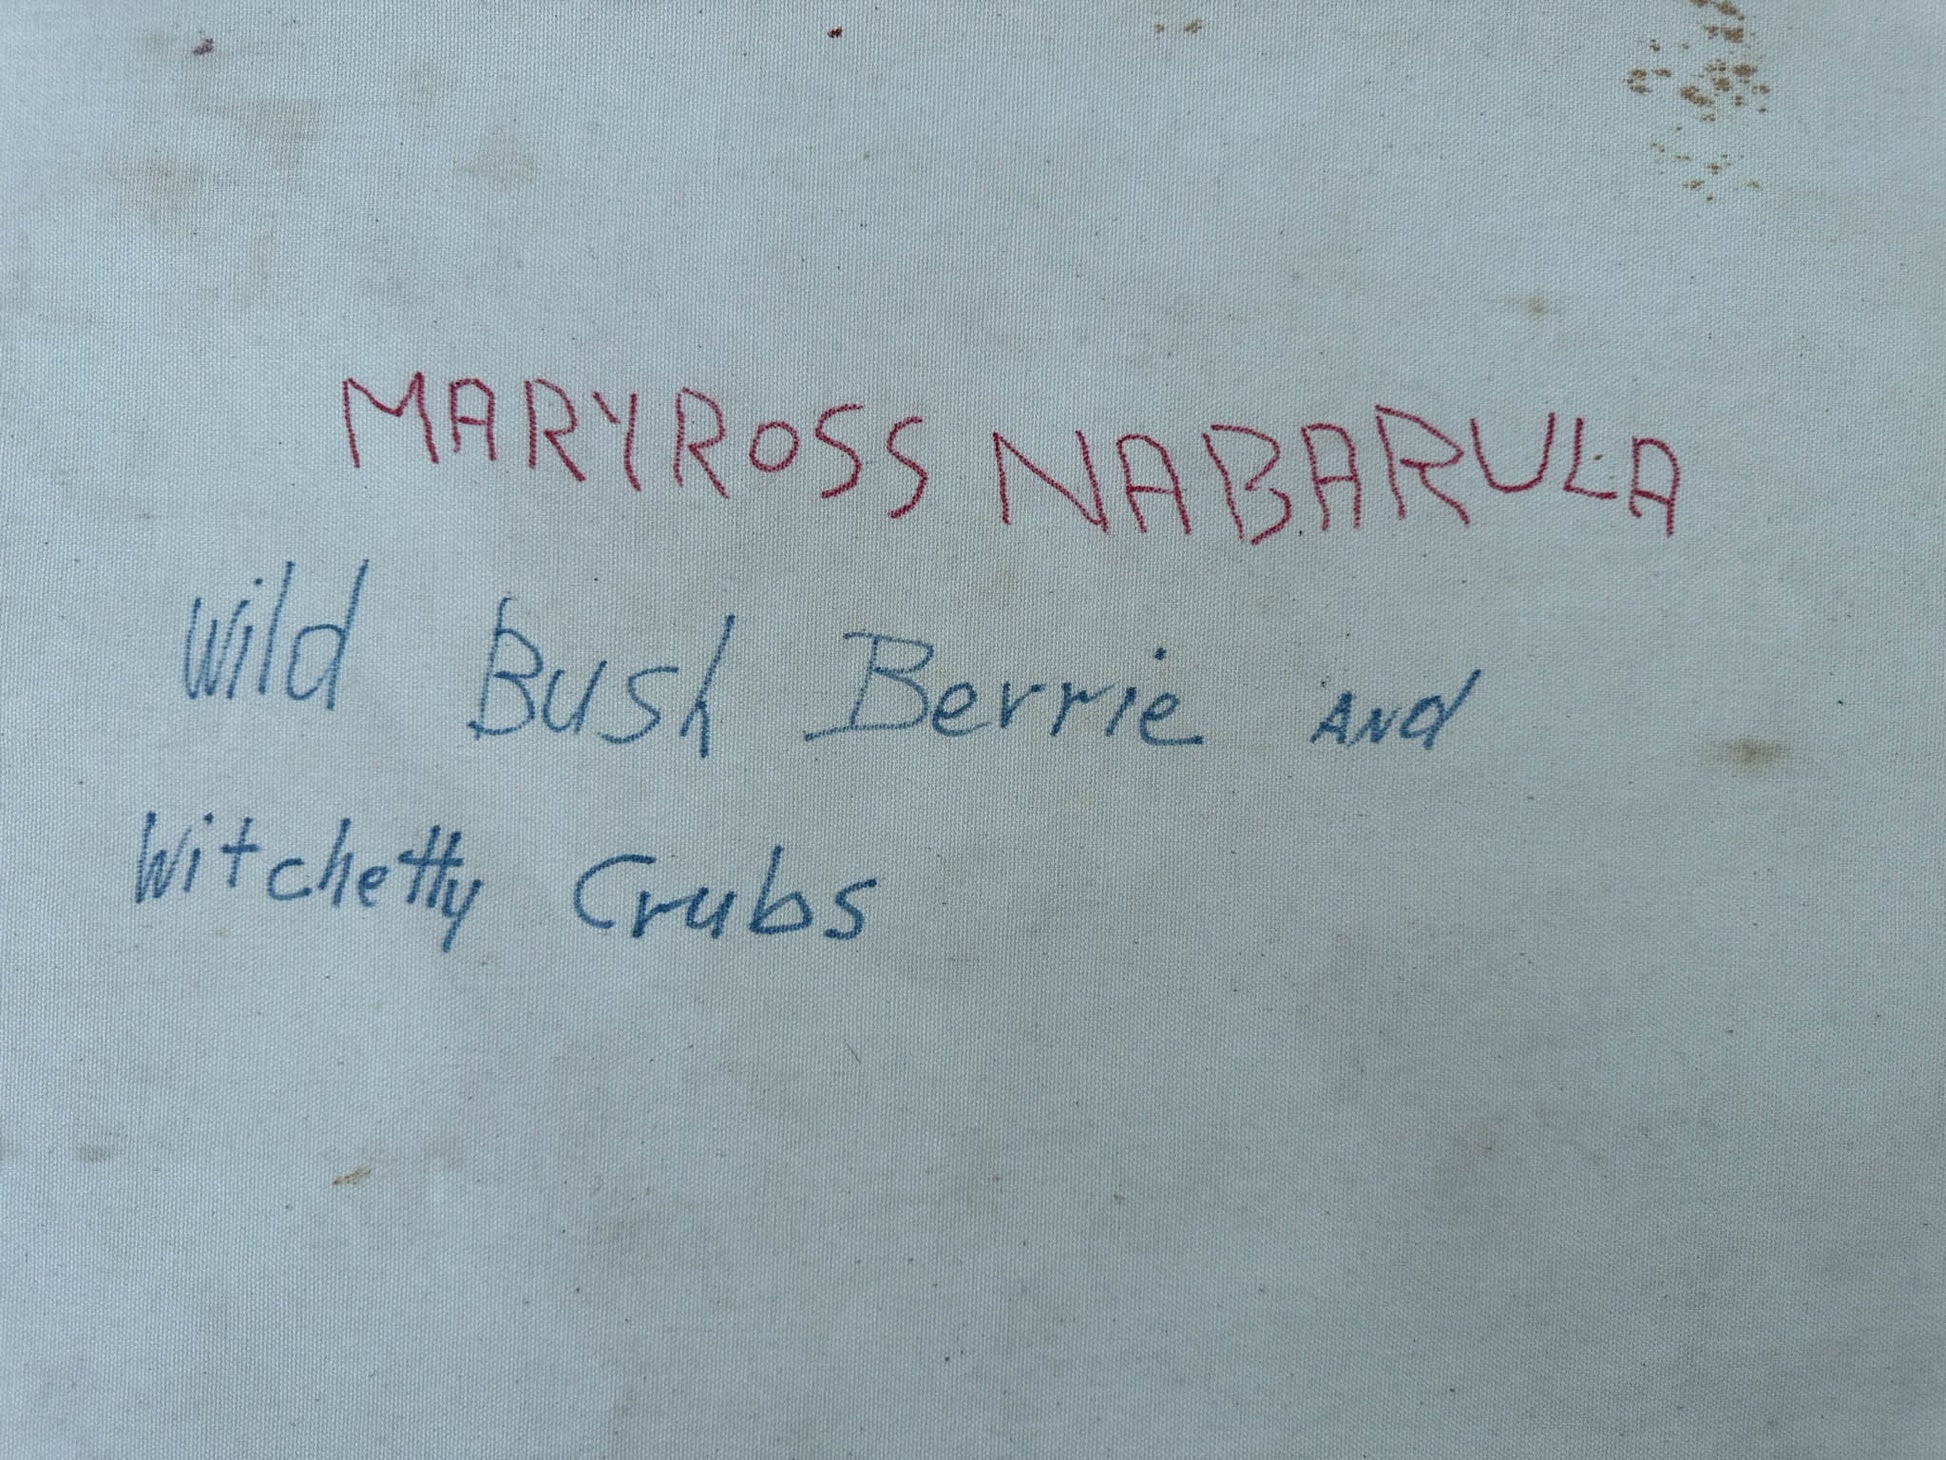 MARYROSS NABARULA
Wild Bush Berrie AND
Witchetty Crubs